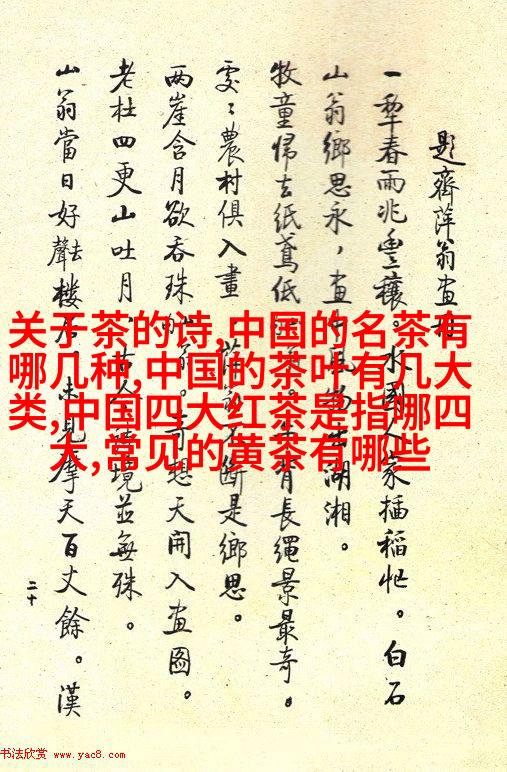 題齊萍翁畫
一犁春雨兆豐穰。水國人家插稻忙。白石
山翁鄉思永,畫湖湘。
牧童歸去紙鳶低背長繩景最奇。
處〻農村俱入畫斷是鄉思。
兩崖含月欲吞珠奇想天開入畫圖。
老杜四更山吐月,古人境並無殊。
山翁當日好聲去樓居。未見摩天百丈餘。漢
二十
关于茶的诗,中国的名茶有
哪几种,中国的茶叶有几大
类,中国四大红茶是指哪四
大,常见的黄茶有哪些
书法欣赏 www.yac8.com